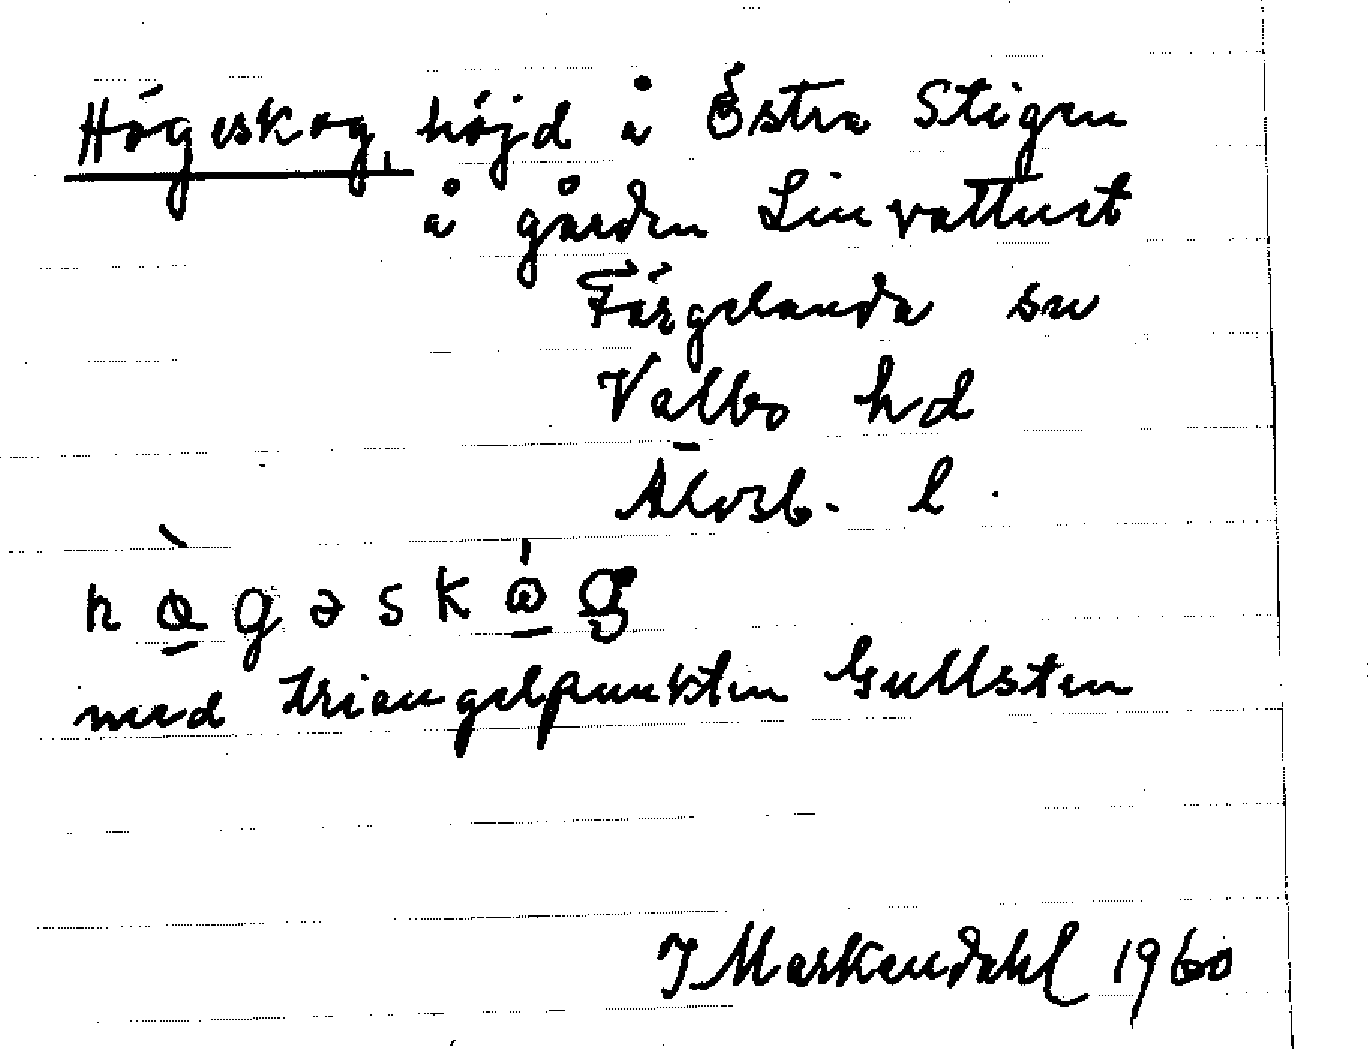 Högeskog, höjd å Östra Stigen
å gården Linvattnet
Färgelanda sn
Valbo hd
Älvsb. l.
med triangelpunkten Gullsten
J Markendahl 1960